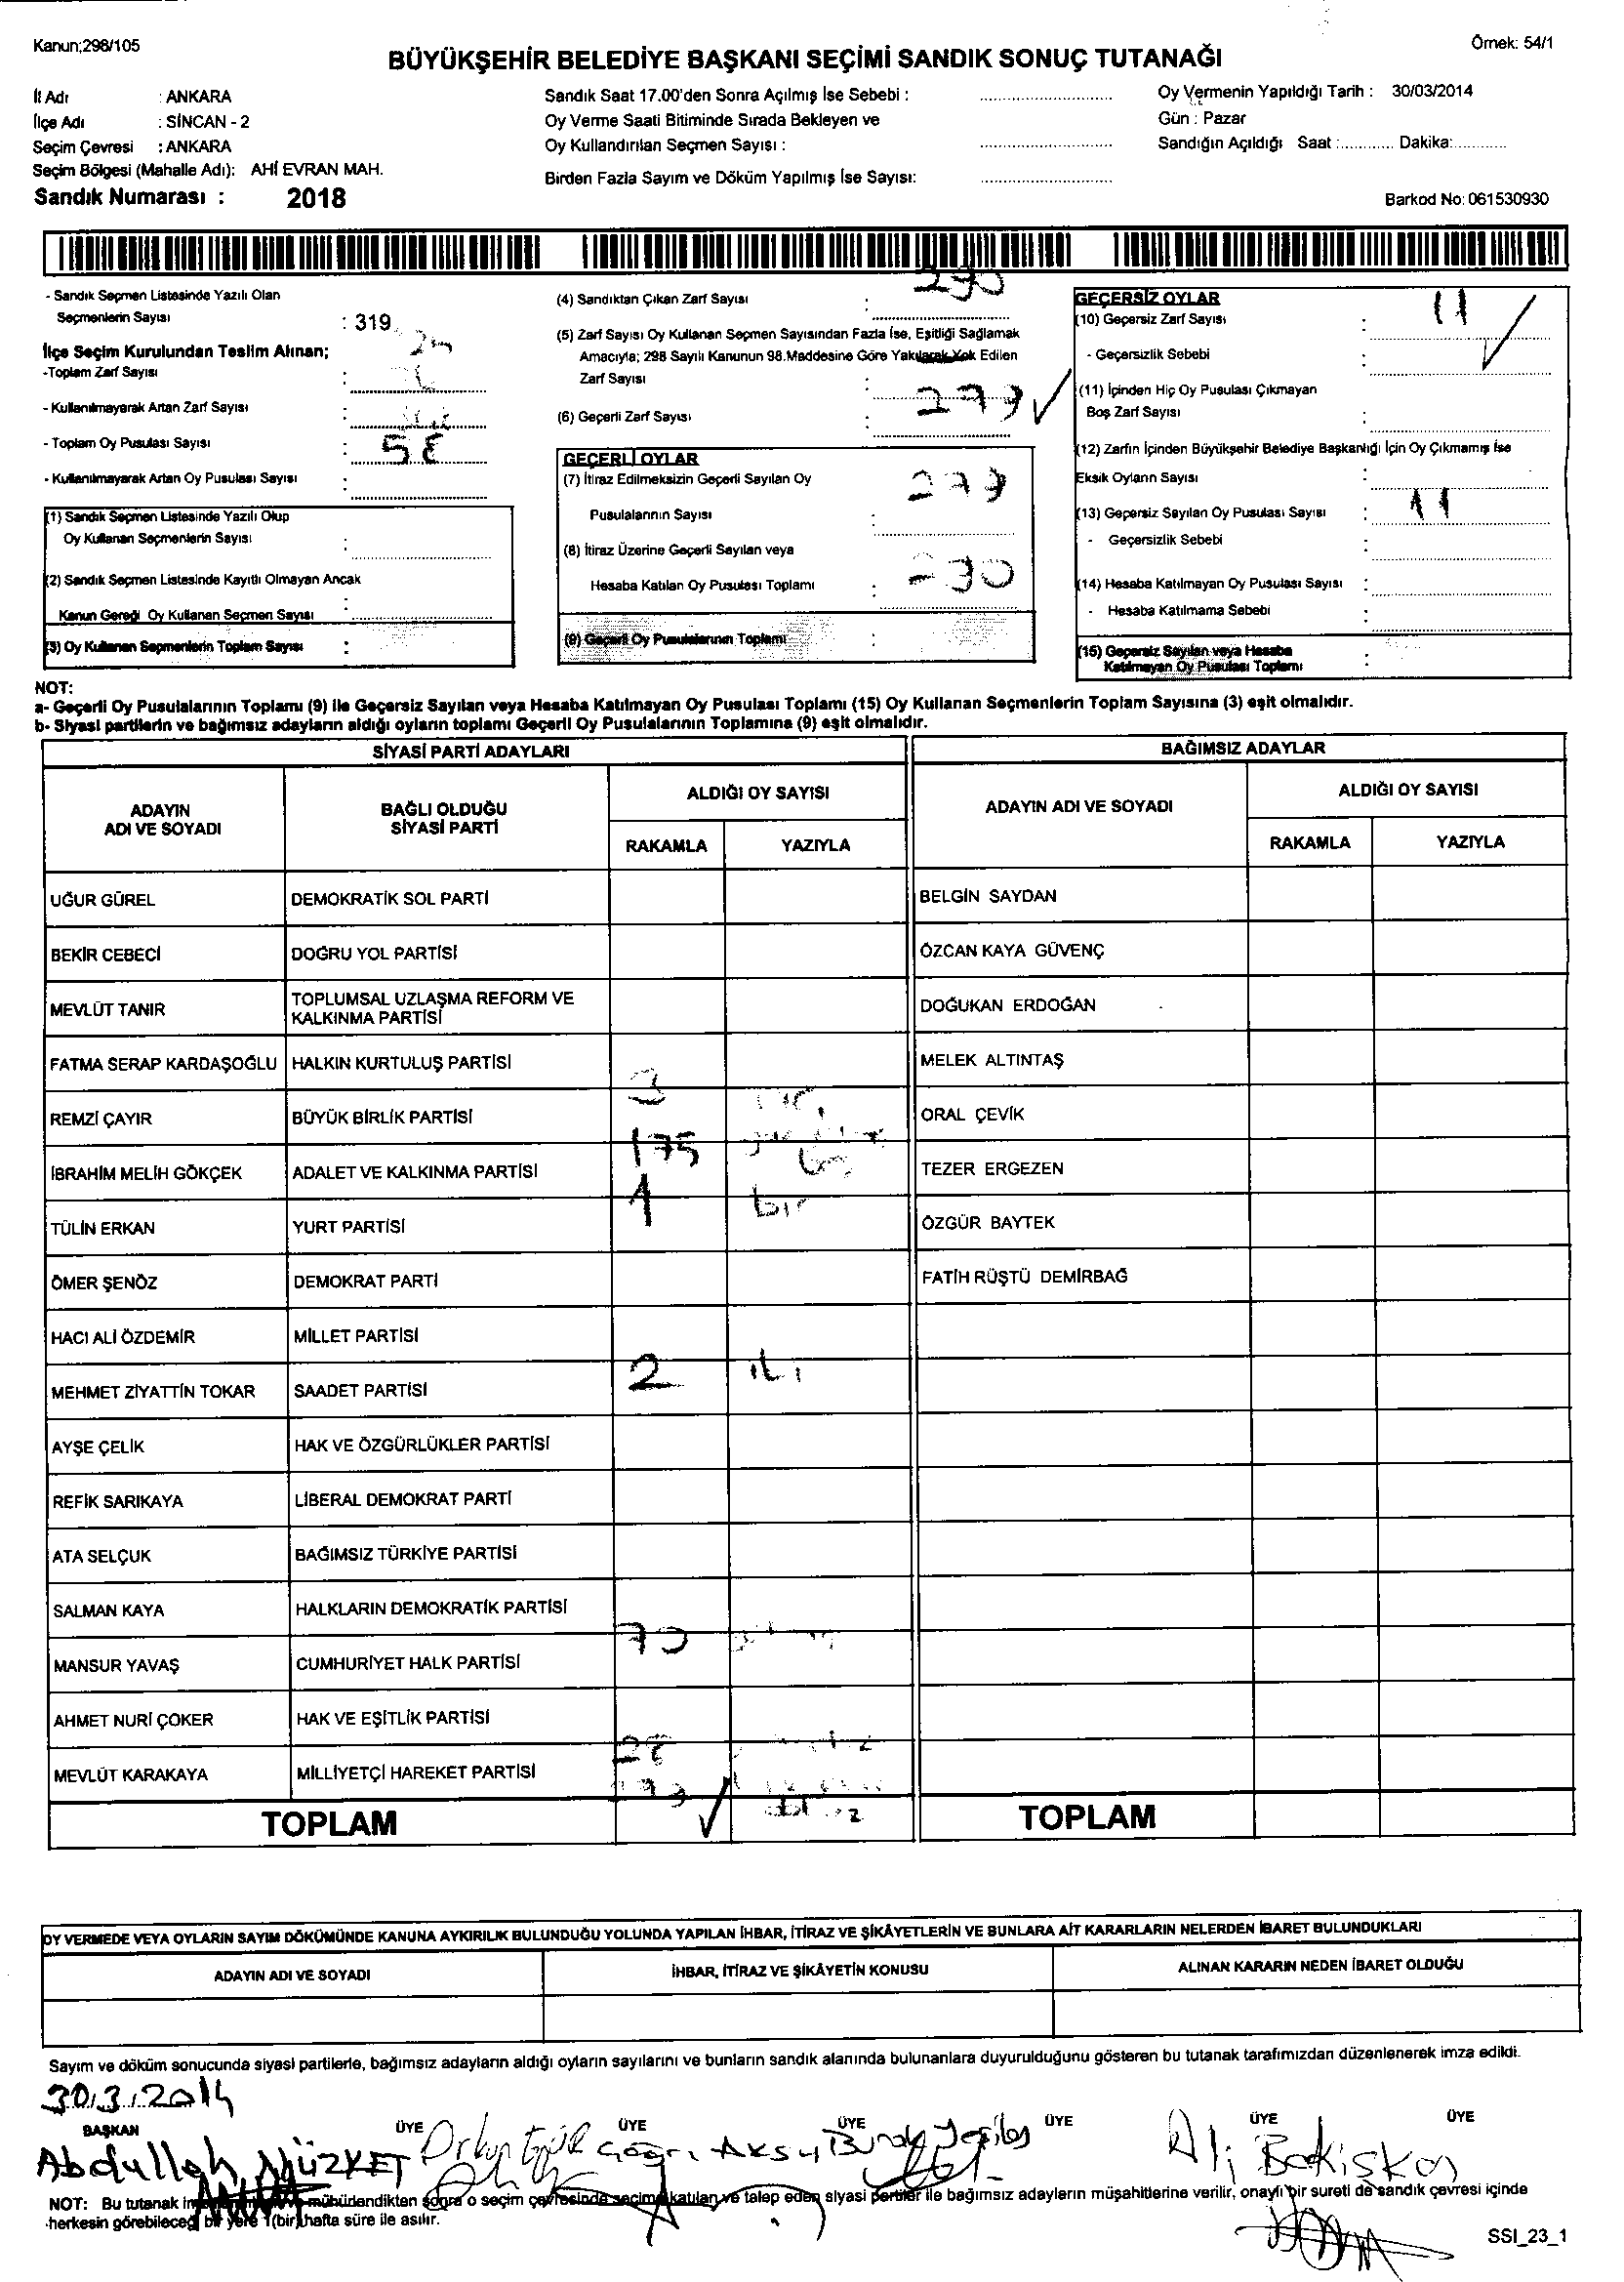 Kanun;298/105
Örnek: 54/1
BÜYÜKŞEHİR BELEDİYE BAŞKANI SEÇİMİ SANDIK SONUÇ TUTANAĞI
İl Adı : ANKARA
İlçe Adı : SİNCAN - 2
Seçim Çevresi : ANKARA
Seçim Bölgesi (Mahalle Adı): AHİ EVRAN MAH.
Sandık Numarası : 2018
Sandık Saat 17.00'den Sonra Açılmış İse Sebebi :
Oy Verme Saati Bitiminde Sırada Bekleyen ve
Oy Kullandırılan Seçmen Sayısı :
Birden Fazla Sayım ve Döküm Yapılmış İse Sayısı:
Oy Vermenin Yapıldığı Tarih : 30/03/2014
Gün : Pazar
Sandığın Açıldığı Saat :............ Dakika:............
Barkod No: 061530930
- Sandık Seçmen Listesinde Yazılı Olan
Seçmenlerin Sayısı : 319
İlçe Seçim Kurulundan Teslim Alınan;
-Toplam Zarf Sayısı :
- Kullanılmayarak Artan Zarf Sayısı :
- Toplam Oy Pusulası Sayısı :
- Kullanılmayarak Artan Oy Pusulası Sayısı :
(1) Sandık Seçmen Listesinde Yazılı Olup
Oy Kullanan Seçmenlerin Sayısı :
(2) Sandık Seçmen Listesinde Kayıtlı Olmayan Ancak
Kanun Gereği Oy Kullanan Seçmen Sayısı :
(3) Oy Kullanan Seçmenlerin Toplam Sayısı :
(4) Sandıktan Çıkan Zarf Sayısı : 290
(5) Zarf Sayısı Oy Kullanan Seçmen Sayısından Fazla İse, Eşitliği Sağlamak
Amacıyla; 298 Sayılı Kanunun 98.Maddesine Göre Yakılarak Yok Edilen
Zarf Sayısı :
279
(6) Geçerli Zarf Sayısı :
GEÇERLİ OYLAR
(7) İtiraz Edilmeksizin Geçerli Sayılan Oy 279
Pusulalarının Sayısı :
(8) İtiraz Üzerine Geçerli Sayılan veya
Hesaba Katılan Oy Pusulası Toplamı :
(9) Geçerli Oy Pusulalarının Toplamı :
GEÇERSİZ OYLAR 11
(10) Geçersiz Zarf Sayısı :
- Geçersizlik Sebebi :
(11) İçinden Hiç Oy Pusulası Çıkmayan
Boş Zarf Sayısı :
(12) Zarfın İçinden Büyükşehir Belediye Başkanlığı İçin Oy Çıkmamış İse
Eksik Oyların Sayısı :
(13) Geçersiz Sayılan Oy Pusulası Sayısı : 11
- Geçersizlik Sebebi :
(14) Hesaba Katılmayan Oy Pusulası Sayısı :
- Hesaba Katılmama Sebebi :
(15) Geçersiz Sayılan veya Hesaba
Katılmayan Oy Pusulası Toplamı :
NOT:
a- Geçerli Oy Pusulalarının Toplamı (9) ile Geçersiz Sayılan veya Hesaba Katılmayan Oy Pusulası Toplamı (15) Oy Kullanan Seçmenlerin Toplam Sayısına (3) eşit olmalıdır.
b- Siyasi partilerin ve bağımsız adayların aldığı oyların toplamı Geçerli Oy Pusulalarının Toplamına (9) eşit olmalıdır.
SİYASİ PARTİ ADAYLARI
ADAYIN
ADI VE SOYADI
BAĞLI OLDUĞU
SİYASİ PARTİ
ALDIĞI OY SAYISI
RAKAMLA YAZIYLA
UĞUR GÜREL DEMOKRATİK SOL PARTİ
BEKİR CEBECİ DOĞRU YOL PARTİSİ
MEVLÜT TANIR TOPLUMSAL UZLAŞMA REFORM VE
KALKINMA PARTİSİ
FATMA SERAP KARDAŞOĞLU HALKIN KURTULUŞ PARTİSİ
REMZİ ÇAYIR BÜYÜK BİRLİK PARTİSİ 3
İBRAHİM MELİH GÖKÇEK ADALET VE KALKINMA PARTİSİ 175
TÜLİN ERKAN YURT PARTİSİ 1 bir
ÖMER ŞENÖZ DEMOKRAT PARTİ
HACI ALİ ÖZDEMİR MİLLET PARTİSİ
MEHMET ZİYATTİN TOKAR SAADET PARTİSİ 2 iki
AYŞE ÇELİK HAK VE ÖZGÜRLÜKLER PARTİSİ
REFİK SARIKAYA LİBERAL DEMOKRAT PARTİ
ATA SELÇUK BAĞIMSIZ TÜRKİYE PARTİSİ
SALMAN KAYA HALKLARIN DEMOKRATİK PARTİSİ
MANSUR YAVAŞ CUMHURİYET HALK PARTİSİ 70
AHMET NURİ ÇOKER HAK VE EŞİTLİK PARTİSİ
MEVLÜT KARAKAYA MİLLİYETÇİ HAREKET PARTİSİ 28
TOPLAM
BAĞIMSIZ ADAYLAR
ADAYIN ADI VE SOYADI
ALDIĞI OY SAYISI
RAKAMLA YAZIYLA
BELGİN SAYDAN
ÖZCAN KAYA GÜVENÇ
DOĞUKAN ERDOĞAN
MELEK ALTINTAŞ
ORAL ÇEVİK
TEZER ERGEZEN
ÖZGÜR BAYTEK
FATİH RÜŞTÜ DEMİRBAĞ
TOPLAM
OY VERMEDE VEYA OYLARIN SAYIM DÖKÜMÜNDE KANUNA AYKIRILIK BULUNDUĞU YOLUNDA YAPILAN İHBAR, İTİRAZ VE ŞİKÂYETLERİN VE BUNLARA AİT KARARLARIN NELERDEN İBARET BULUNDUKLARI
ADAYIN ADI VE SOYADI İHBAR, İTİRAZ VE ŞİKÂYETİN KONUSU ALINAN KARARIN NEDEN İBARET OLDUĞU
Sayım ve döküm sonucunda siyasi partilerle, bağımsız adayların aldığı oyların sayılarını ve bunların sandık alanında bulunanlara duyurulduğunu gösteren bu tutanak tarafımızdan düzenlenerek imza edildi.
30.3.2014
BAŞKAN ÜYE ÜYE ÜYE ÜYE ÜYE ÜYE
Abdullah MÜZKET Çağrı AKSU Ali Bakışkan
NOT: Bu tutanak mühürlendikten sonra o seçim çevresinde seçime katılan ve talep eden siyasi partiler ile bağımsız adayların müşahitlerine verilir, onaylı bir sureti de sandık çevresi içinde
herkesin görebileceği bir yere 1(bir) hafta süre ile asılır.
SSI_23_1